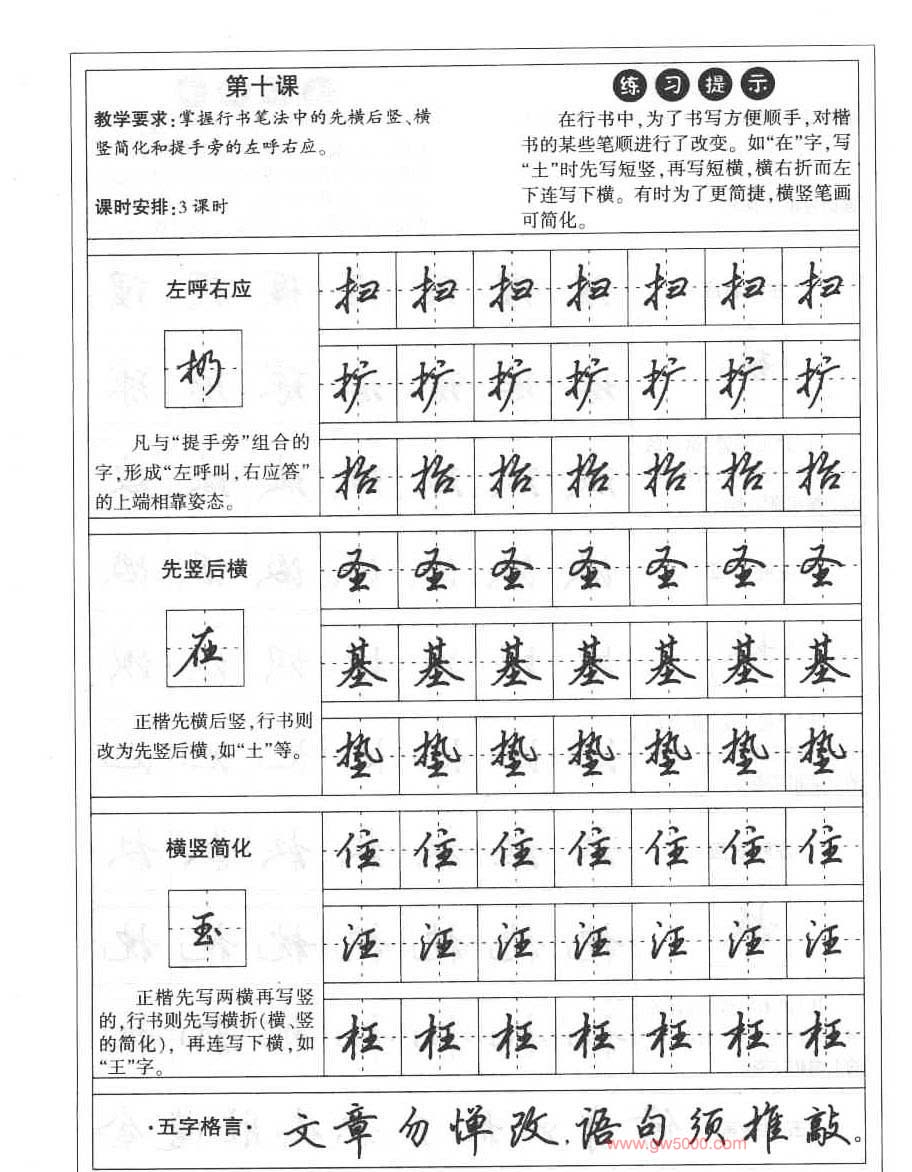 第十课
教学要求:掌握行书笔法中的先横后竖、横
竖简化和提手旁的左呼右应。
课时安排:3课时
练习提示
在行书中,为了书写方便顺手,对楷
书的某些笔顺进行了改变。如“在”字,写
“土”时先写短竖,再写短横,横右折而左
下连写下横。有时为了更简捷,横竖笔画
可简化。
左呼右应
扔
凡与“提手旁”组合的
字,形成“左呼叫,右应答”
的上端相靠姿态。
扫扫扫扫扫扫扫
扩扩扩扩扩扩扩
抬抬抬抬抬抬抬
先竖后横
在
正楷先横后竖,行书则
改为先竖后横,如“土”等。
圣圣圣圣圣圣圣
基基基基基基基
垫垫垫垫垫垫垫
横竖简化
玉
正楷先写两横再写竖
的,行书则先写横折(横、竖
的简化),再连写下横,如
“王”字。
住住住住住住住
汪汪汪汪汪汪汪
枉枉枉枉枉枉枉
·五字格言· 文章勿惮改,语句须推敲。
www.gw5000.com